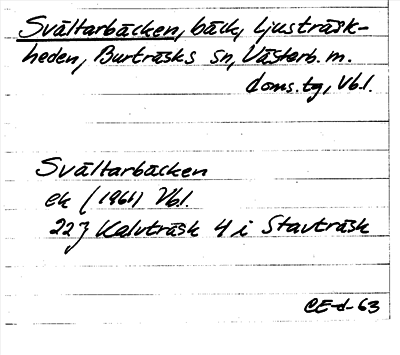 Svältarbäcken, bäck, Ljusträsk-
heden, Burträsks sn, Västerb. m.
doms.tg, Vb.l.
Svältarbäcken
ek (1961) Vbl.
22J Kalvträsk 4 i Stavträsk
CE-d-63